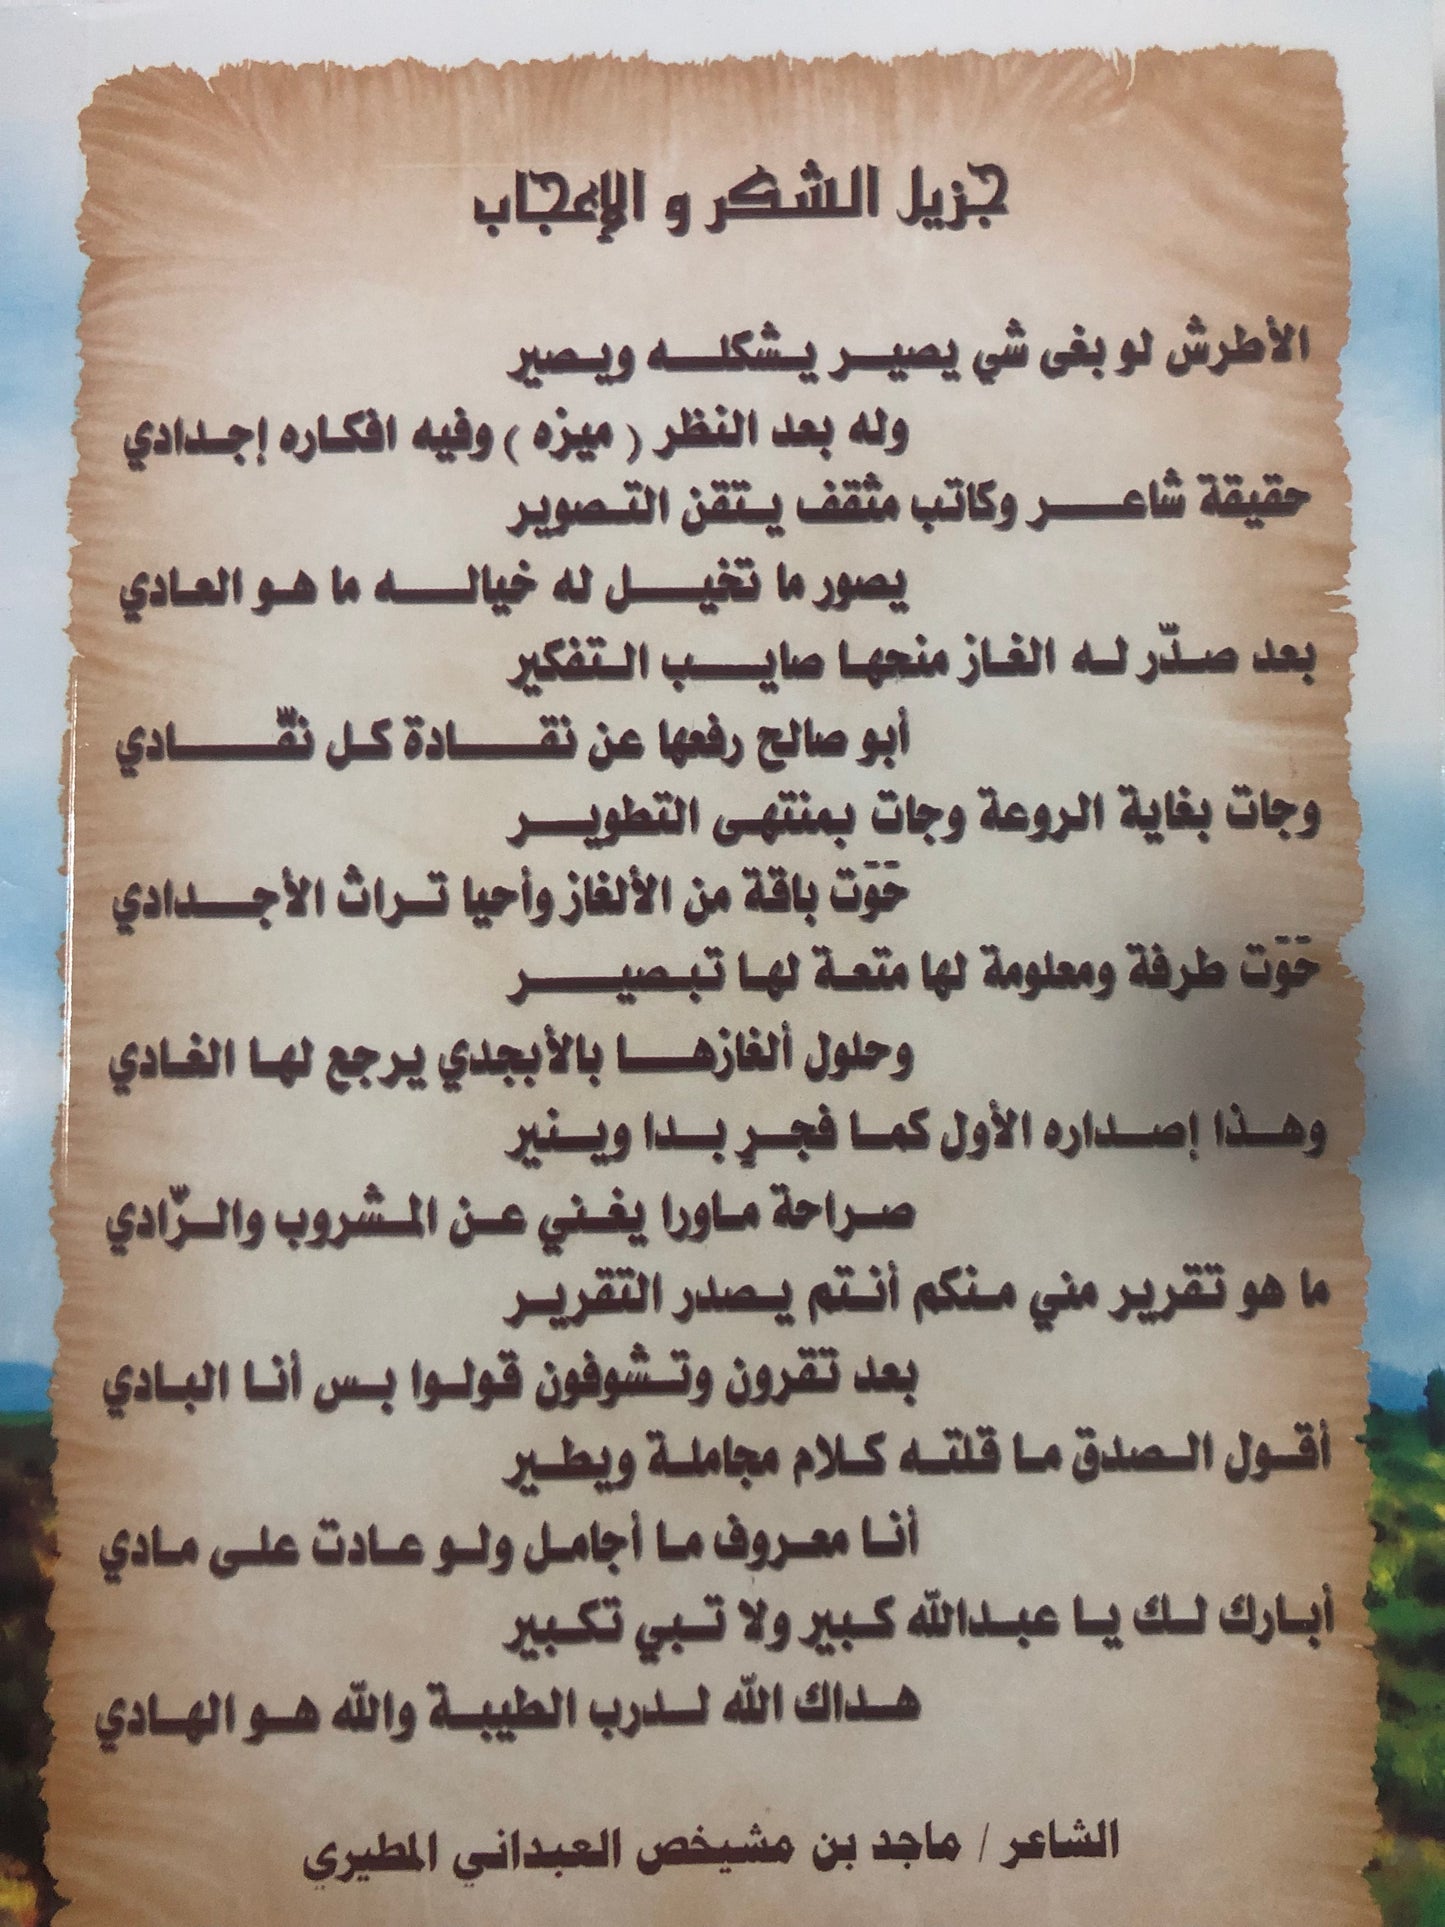 جزيل الشكر و الإعجاب
الأطرش لو بغى شي يصير يشكله ويصير
وله بعد النظر ( ميزه ) وفيه افكاره إجدادي
حقيقة شاعر وكاتب مثقف يتقن التصوير
يصور ما تخيل له خياله ما هو العادي
بعد صدّر له الغاز منحها صايب التفكير
أبو صالح رفعها عن نقادة كل نقّادي
وجات بغاية الروعة وجات بمنتهى التطوير
حَوَت باقة من الألغاز وأحيا تراث الأجدادي
حَوَت طرفة ومعلومة لها متعة لها تبصير
وحلول ألغازها بالأبجدي يرجع لها الغادي
وهذا إصداره الأول كما فجرٍ بدا وينير
صراحة ماورا يغني عن المشروب والزّادي
ما هو تقرير مني منكم أنتم يصدر التقرير
بعد تقرون وتشوفون قولوا بس أنا البادي
أقول الصدق ما قلته كلام مجاملة ويطير
أنا معروف ما أجامل ولو عادت على مادي
أبارك لك يا عبدالله كبير ولا تبي تكبير
هداك الله لدرب الطيبة والله هو الهادي
الشاعر / ماجد بن مشيخص العبداني المطيري